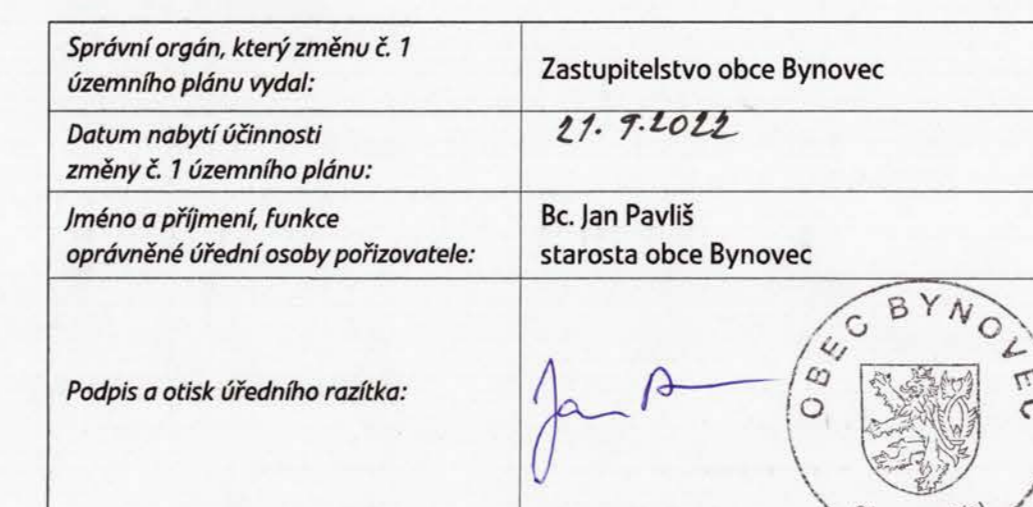 Správní orgán, který změnu č. 1
územního plánu vydal:
Zastupitelstvo obce Bynovec
Datum nabytí účinnosti
změny č. 1 územního plánu:
21. 9.2022
Jméno a příjmení, funkce
oprávněné úřední osoby pořizovatele:
Bc. Jan Pavliš
starosta obce Bynovec
Podpis a otisk úředního razítka:
Jan
OBEC BYNOVEC